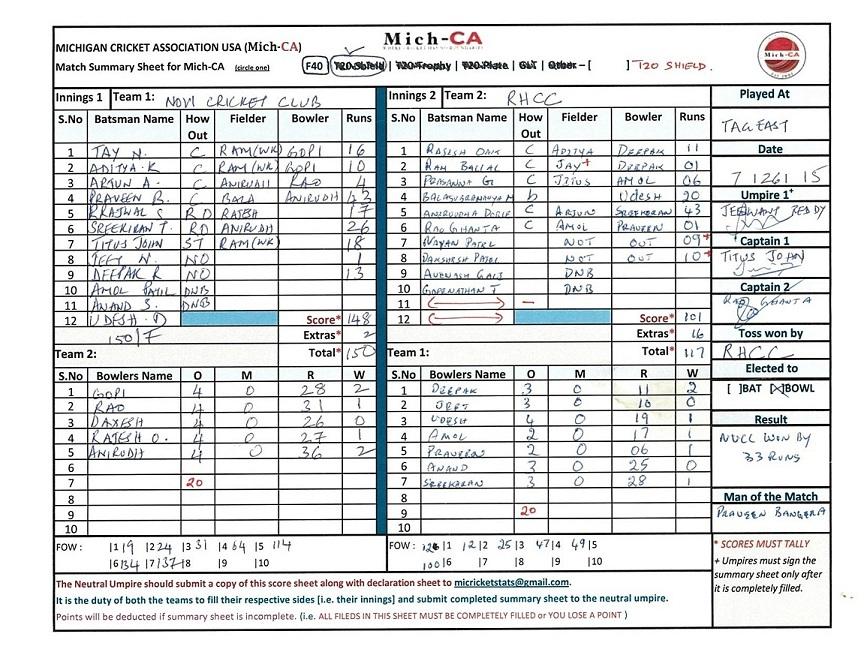 MICHIGAN CRICKET ASSOCIATION USA (Mich-CA)
Mich-CA
Match Summary Sheet for Mich-CA (circle one) F40 | T20-Shield | T20-Trophy | T20-Plate | GLT | Other – [ ] T20 SHIELD.
Innings 1 Team 1: NOVI CRICKET CLUB
S.No Batsman Name How Out Fielder Bowler Runs
1 TAY N. C RAM(WK) GOPI 16
2 ADITYA.K C RAM(WK) GOPI 10
3 ARJUN A. C ANIRUDH RAO 4
4 PRAVEEN B. C BALA ANIRUDH 43
5 PRAJWAL S RO RATESH 17
6 SREEKIRAN T. RO ANIRUDH 26
7 TITUS JOHN ST RAM(WK) 18
8 JEEY N. NO 1
9 DEEPAK R NO 13
10 AMOL PATIL DNB
11 ANAND S. DNB
12 UDESH.D Score* 148
150/7 Extras* 2
Total* 150
Innings 2 Team 2: RHCC
S.No Batsman Name How Out Fielder Bowler Runs
1 C ADITYA DEEPAK 11
2 RAM BALLAL C JAY DEEPAK 01
3 PRASANNA G C TITUS AMOL 06
4 b UDESH 20
5 C ARJUN SREEKARAN 43
6 RAO GHANTA C AMOL PRAVEEN 01
7 NAYAN PATEL NOT OUT 09*
8 DAKSHESH PATEL NOT OUT 10*
9 DNB
10 GOPENATHAN T DNB
11
12 Score* 101
Extras* 16
Total* 117
Team 2:
S.No Bowlers Name O M R W
1 GOPI 4 0 28 2
2 RAO 4 0 31 1
3 DAXESH 4 0 26 0
4 RATESH O. 4 0 27 1
5 ANIRUDH 4 0 36 2
6
7 20
8
9
10
FOW : |1 9 |2 24 |3 31 |4 64 |5 114
|6 134 |7 137 |8 |9 |10
Team 1:
S.No Bowlers Name O M R W
1 DEEPAK 3 0 11 2
2 JEET 3 0 10 0
3 UDESH 4 0 19 1
4 AMOL 2 0 17 1
5 PRAVEEN 2 0 06 1
6 ANAND 3 0 25 0
7 SREEKARAN 3 0 28 1
8
9 20
10
FOW : |1 12 |2 25 |3 47 |4 49 |5
100 |6 |7 |8 |9 |10
Played At
TAG EAST
Date
7 1261 15
Umpire 1+
JEEWANT REDDY
Captain 1
TITUS JOHN
Captain 2
RAO GHANTA
Toss won by
RHCC
Elected to
[ ]BAT [X]BOWL
Result
NVCC WON BY
33 RUNS
Man of the Match
PRAVEEN BANGERA
* SCORES MUST TALLY
+ Umpires must sign the
summary sheet only after
it is completely filled.
The Neutral Umpire should submit a copy of this score sheet along with declaration sheet to micricketstats@gmail.com.
It is the duty of both the teams to fill their respective sides [i.e. their innings] and submit completed summary sheet to the neutral umpire.
Points will be deducted if summary sheet is incomplete. (i.e. ALL FILEDS IN THIS SHEET MUST BE COMPLETELY FILLED or YOU LOSE A POINT )